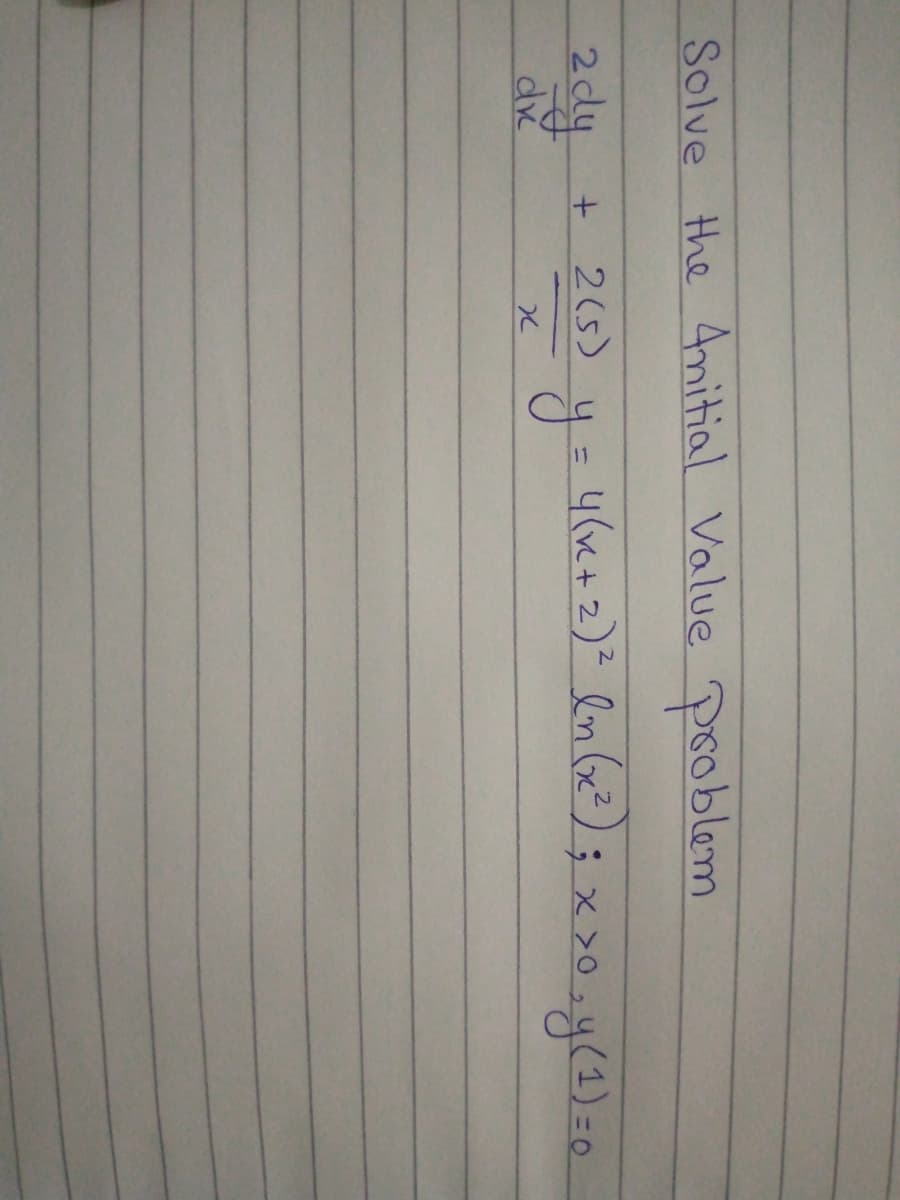 Solve the Initial Value problem
2 dy/dx + 2(5)/x y = 4(x+2)² ln(x²) ; x>0, y(1)=0